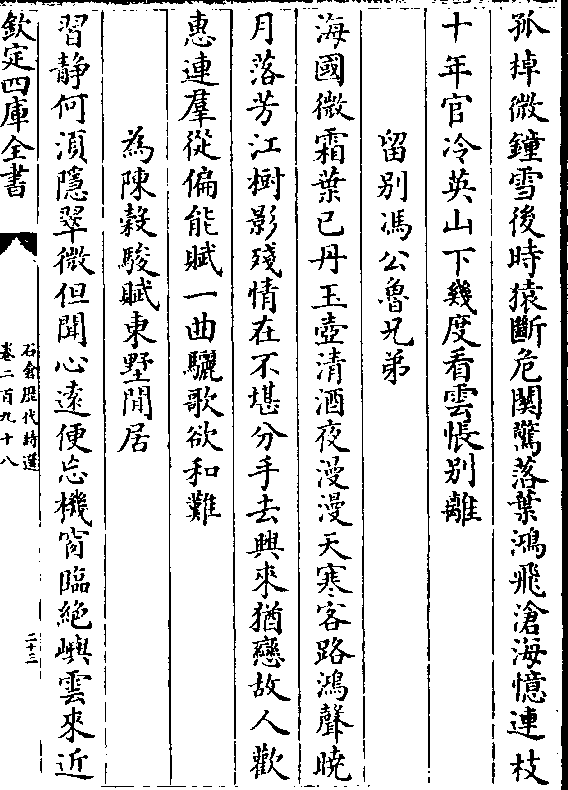 孤棹微鐘雪後時猿斷危關驚落葉鴻飛滄海憶連枝
十年官冷英山下幾度看雲悵别離
留别馮公魯兄弟
海國微霜葉已丹玉壺清酒夜漫漫天寒客路鴻聲曉
月落芳江樹影殘情在不堪分手去興來猶戀故人歡
惠連羣從偏能賦一曲驪歌欲和難
為陳穀駿賦東墅閒居
習静何須隱翠微但聞心遠便忘機窗臨絶嶼雲來近
欽定四庫全書
石倉歴代詩選
卷二百九十八
二十三